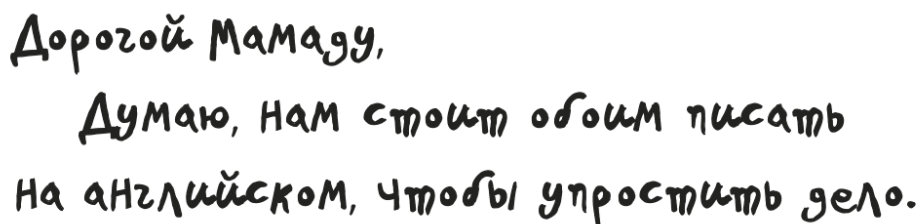 Дорогой Мамаду,
Думаю, нам стоит обоим писать
на английском, чтобы упростить дело.